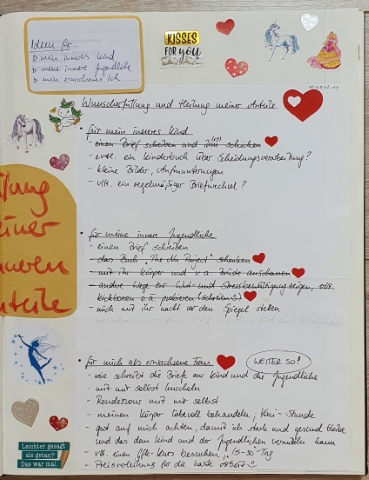 KISSES
FOR you
Ideen für...
▷ mein inneres Kind
▷ meine innere Jugendliche
▷ mein erwachsenes ich
Wunscherfüllung und Heilung meiner Anteile
• für mein inneres Kind
- einen Brief schreiben und schicken
- vllt. ein Kinderbuch über Scheidungsverarbeitung?
- kleine Bilder, Aufmunterungen
- vllt. ein regelmäßiger Briefwechsel?
Heilung
meiner
inneren
Anteile
• für meine innere Jugendliche
- einen Brief schreiben
- das Buch „The Project" schenken
- mit ihr Körper und v.a. Brüste anschauen
- andere Wege zur Wut- und Stressbewältigung zeigen, vllt.
o.ä. probieren (schreien!)
- mich mit ihr nackt vor den Spiegel stellen
• für mich als erwachsene Frau
WEITER SO!
- ich schreibe die Briefe ans Kind und die Jugendliche
- mit mir selbst kuscheln
- Rendezvous mit mir selbst
- meinen Körper liebevoll behandeln; -Stunde
- gut auf mich achten, damit ich stark und gesund bleibe
und das dem Kind und der Jugendlichen vermitteln kann
- vllt. einen Kurs besuchen; 15-30' Tag
- Preisverleihung für die harte Arbeit
Leichter gesagt
als getan?
Das war mal